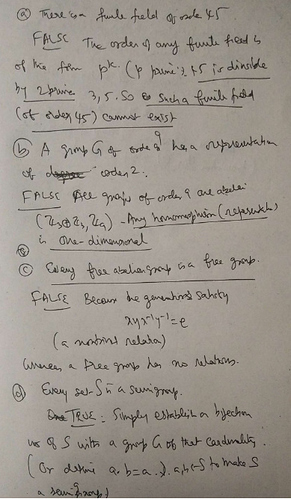 (a) There is a finite field of order 45
FALSE The order of any finite field is
of the form pk. (p prime); 45 is divisible
by 2 prime 3, 5. So such a finite field
(of order 45) cannot exist
(b) A group G of order 9 has a representation
of order 2.
FALSE All groups of order 9 are abelian
(Z3⊕Z3, Z9) - Any homomorphism (representation)
is one-dimensional
(c) Every free abelian group is a free group.
FALSE Because the generators satisfy
xyx⁻¹y⁻¹=e
(a nontrivial relation)
whereas a free group has no relations.
(d) Every set S is a semigroup.
TRUE: Simply establish a bijection
of S with a group G of that cardinality.
(Or define a.b=a a,b∈S to make S
a semigroup)